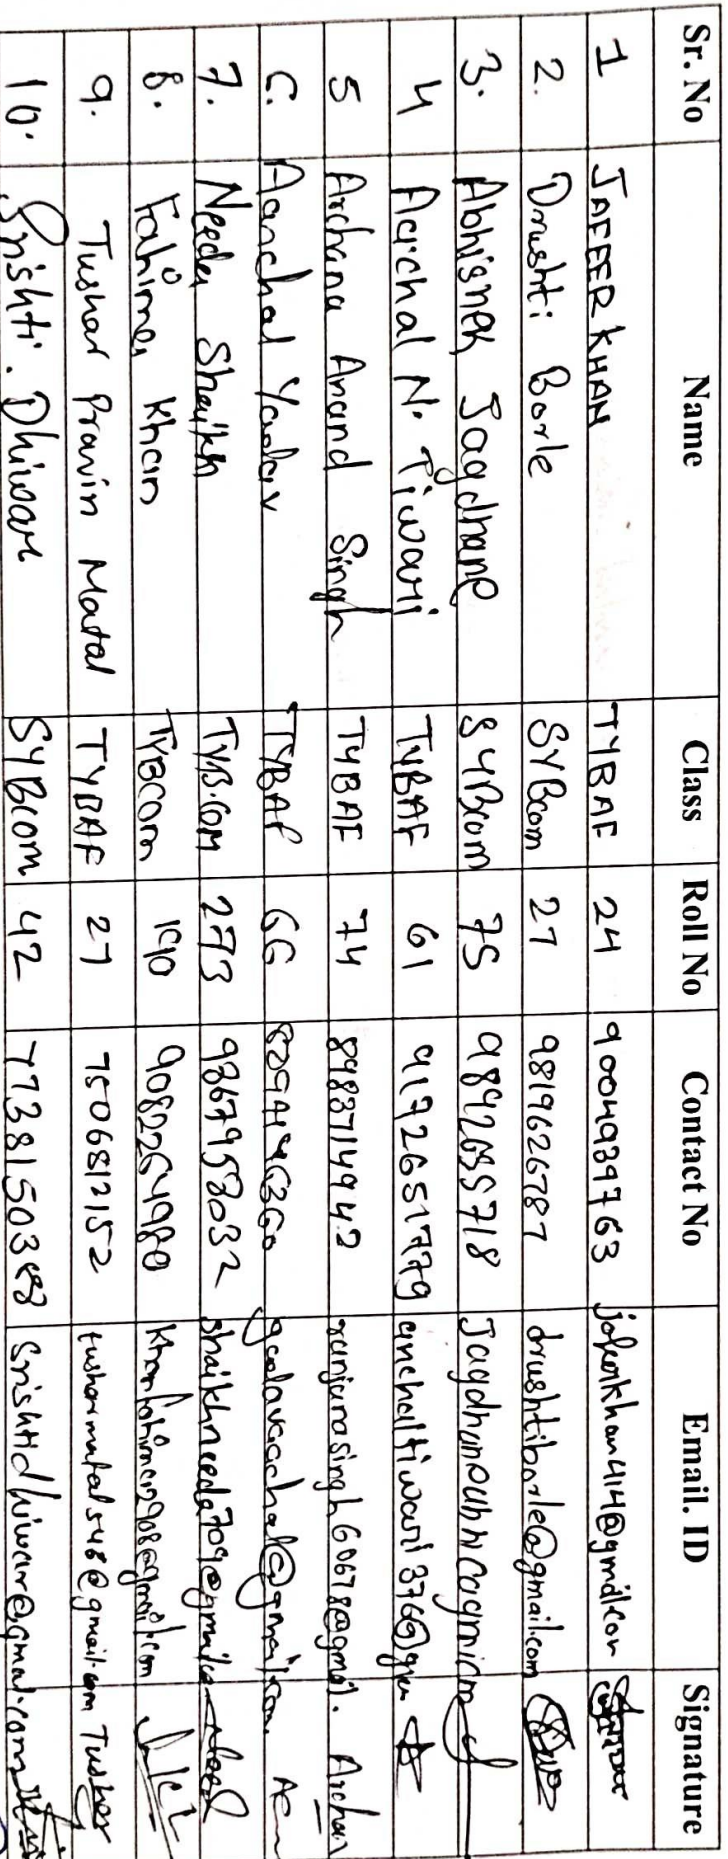 Sr. No Name Class Roll No Contact No Email. ID Signature
1 JAFEER KHAN TYBAF 24 9004939763 jafeerkhan414@gmail.com
2. Drushti Borle SYBcom 27 9819626787 drushtiborle@gmail.com
3. Abhishek Jagdhane SYBcom 75 9892695718
4 Aachal N. Tiwari TYBAF 61 9172651779
5 Archana Anand Singh TYBAF 74 8983714942 ranjanasingh60678@gmail. Archan
6. Aanchal Yadav TYBAF 66
7. Needa Shaikh TYB.COM 273 9367958032 shaikhneeda709@gmail.co
8. Fahima Khan TYBCOM 190 9082264980 khanfahima2908@gmail.com
9. Tushar Pravin Matal TYBAF 27 7506812152 tusharmatal548@gmail.com Tushar
10. Srishti. Dhiwar SYBcom 42 srishtidhiwar@gmail.com